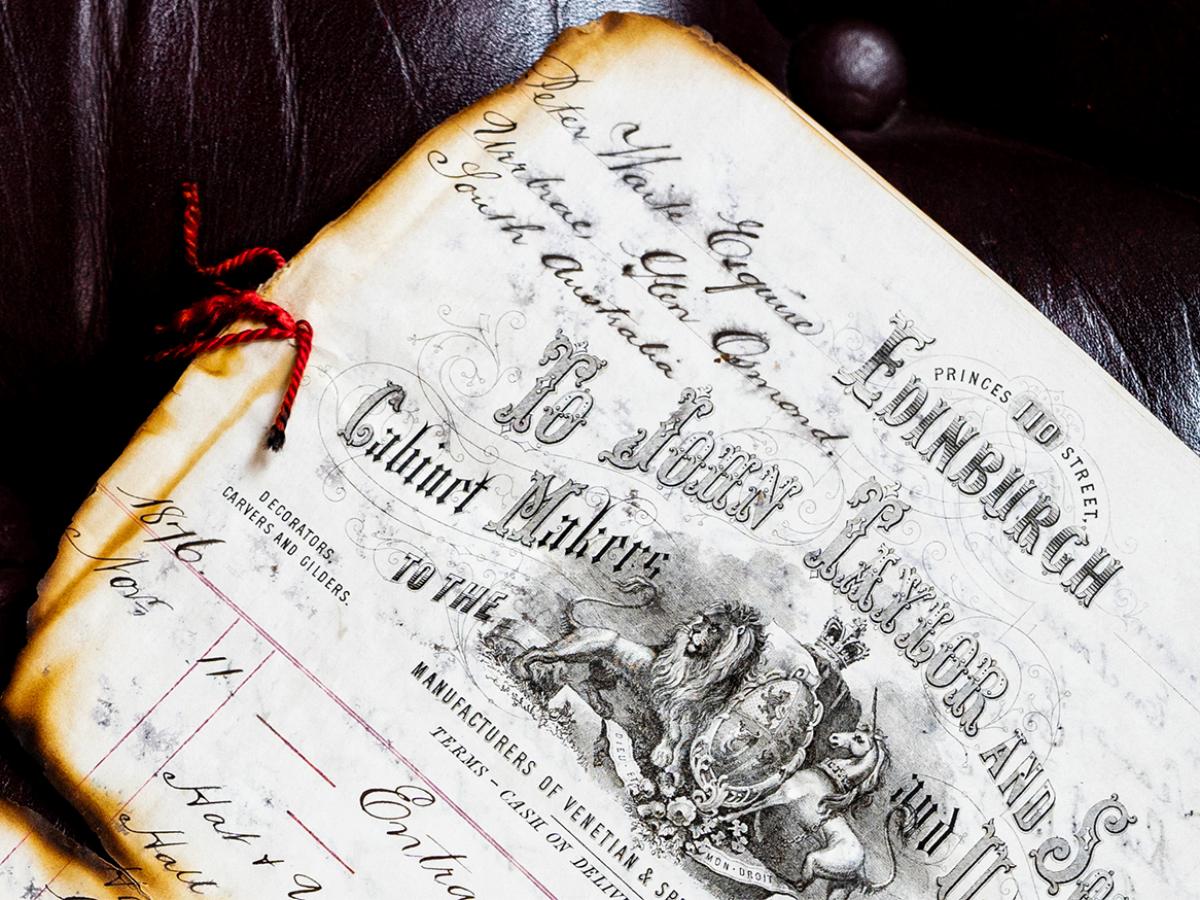 Peter Waite Esquire
Urrbrae, Glen Osmond.
South Australia
EDINBURGH
PRINCES 110 STREET,
TO JOHN TAYLOR AND SO
Cabinet Makers and U
DECORATORS,
CARVERS AND GILDERS.
TO THE
DIEU ET
MON-DROIT
MANUFACTURERS OF VENETIAN & SP
TERMS - CASH ON DELIV
1876
Nov
11
Entra
Hat &
Hall